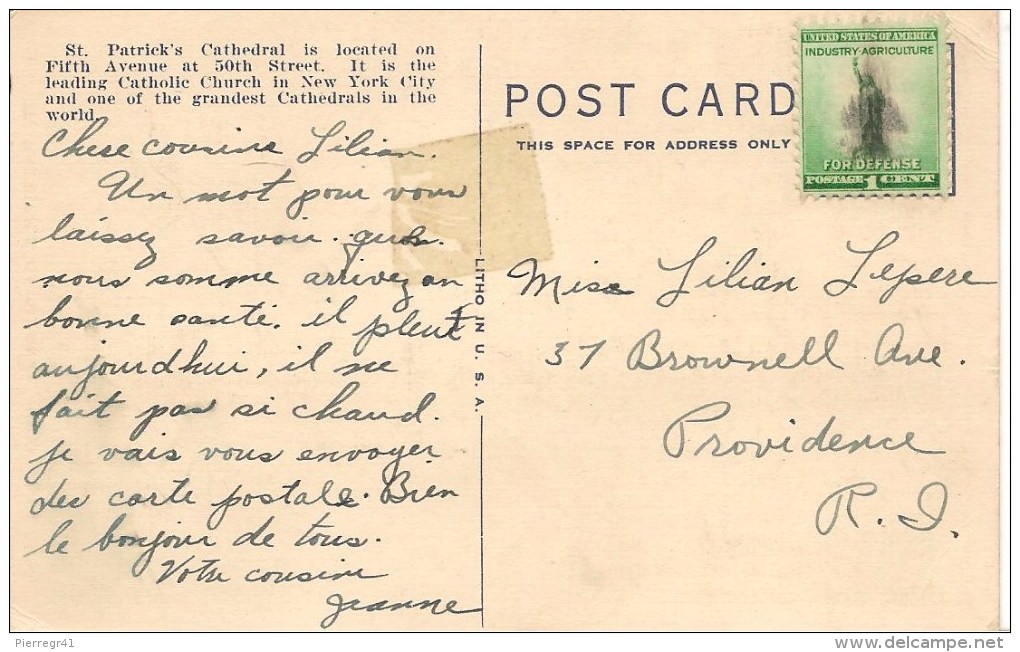 St. Patrick's Cathedral is located on
Fifth Avenue at 50th Street. It is the
leading Catholic Church in New York City
and one of the grandest Cathedrals in the
world.
Chere cousine Lilian.
Un mot pour vous
laissez savoir quon
nous somme arrivez en
bonne santé. il pleut
aujourdhui, il ne
fait pas si chaud.
je vais vous envoyer
des carte postale. Bien
le bonjour de tous.
Votre cousine
Jeanne
LITHO IN U. S. A.
POST CARD
THIS SPACE FOR ADDRESS ONLY
UNITED STATES OF AMERICA
INDUSTRY-AGRICULTURE
FOR DEFENSE
POSTAGE 1 CENT
Miss Lilian Lepere
37 Brownell Ave.
Providence
R. I.
Pierregr41
www.delcampe.net